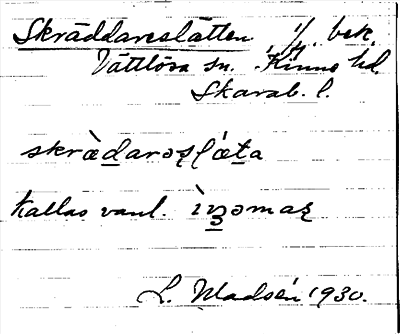 Skräddareslätten 1/1 bek.
Vättlösa sn. Kinne hd.
Skarab. l.
skrädarəsläta
kallas vanl. ìnʒəmaʂ
L. Madsén 1930.